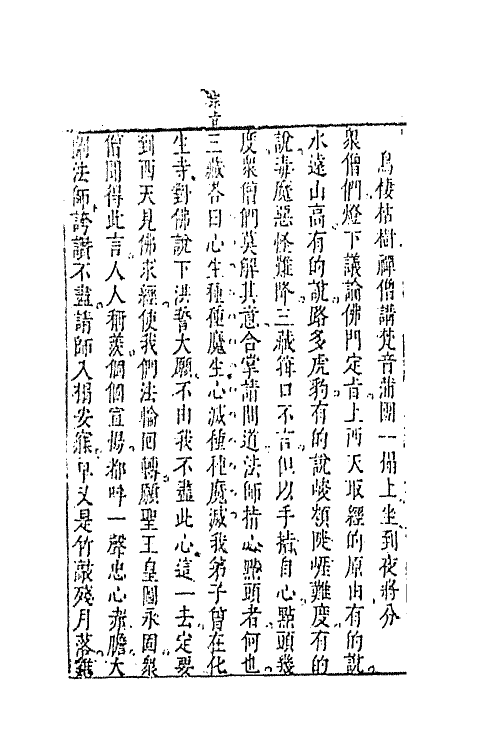 宗旨
鳥棲枯樹禪僧講梵音蒲團一榻上坐到夜將分
衆僧們燈下議論佛門定旨上西天取經的原由有的說
水遠山高有的說路多虎豹有的說峻嶺陡崖難度有的
說毒魔惡怪難降三藏箝口不言但以手指自心點頭幾
度衆僧們莫解其意合掌請問道法師指心點頭者何也
三藏答曰心生種種魔生心滅種種魔滅我弟子曾在化
生寺對佛說下洪誓大願不由我不盡此心這一去定要
到西天見佛求經使我們法輪回轉願聖王皇圖永固衆
僧聞得此言人人稱羨個個宣揚都呌一聲忠心赤膽大
闡法師誇讚不盡請師入榻安寐早又是竹敲殘月落雞